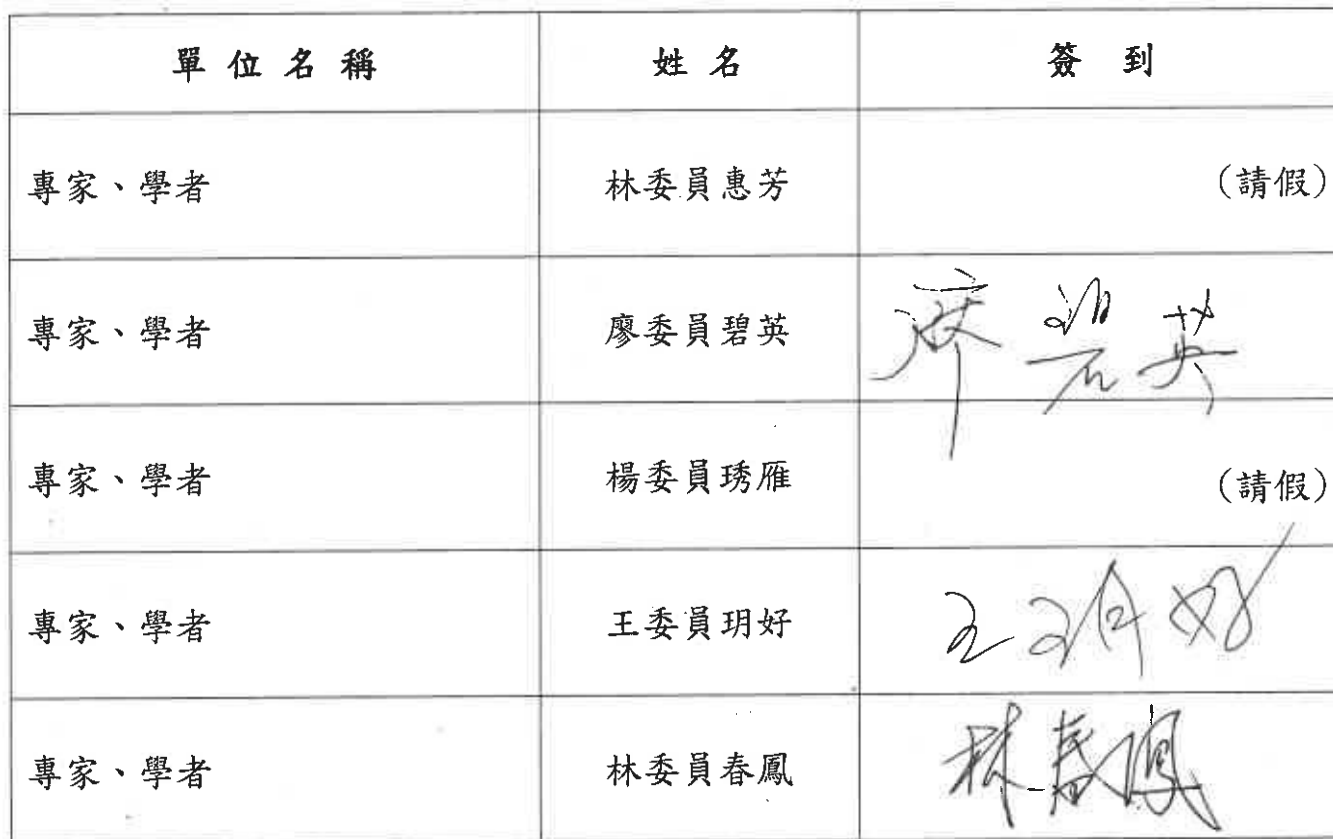 單位名稱 姓名 簽到
專家、學者 林委員惠芳 (請假)
專家、學者 廖委員碧英 廖碧英
專家、學者 楊委員琇雁 (請假)
專家、學者 王委員玥好 王玥好
專家、學者 林委員春鳳 林春鳳